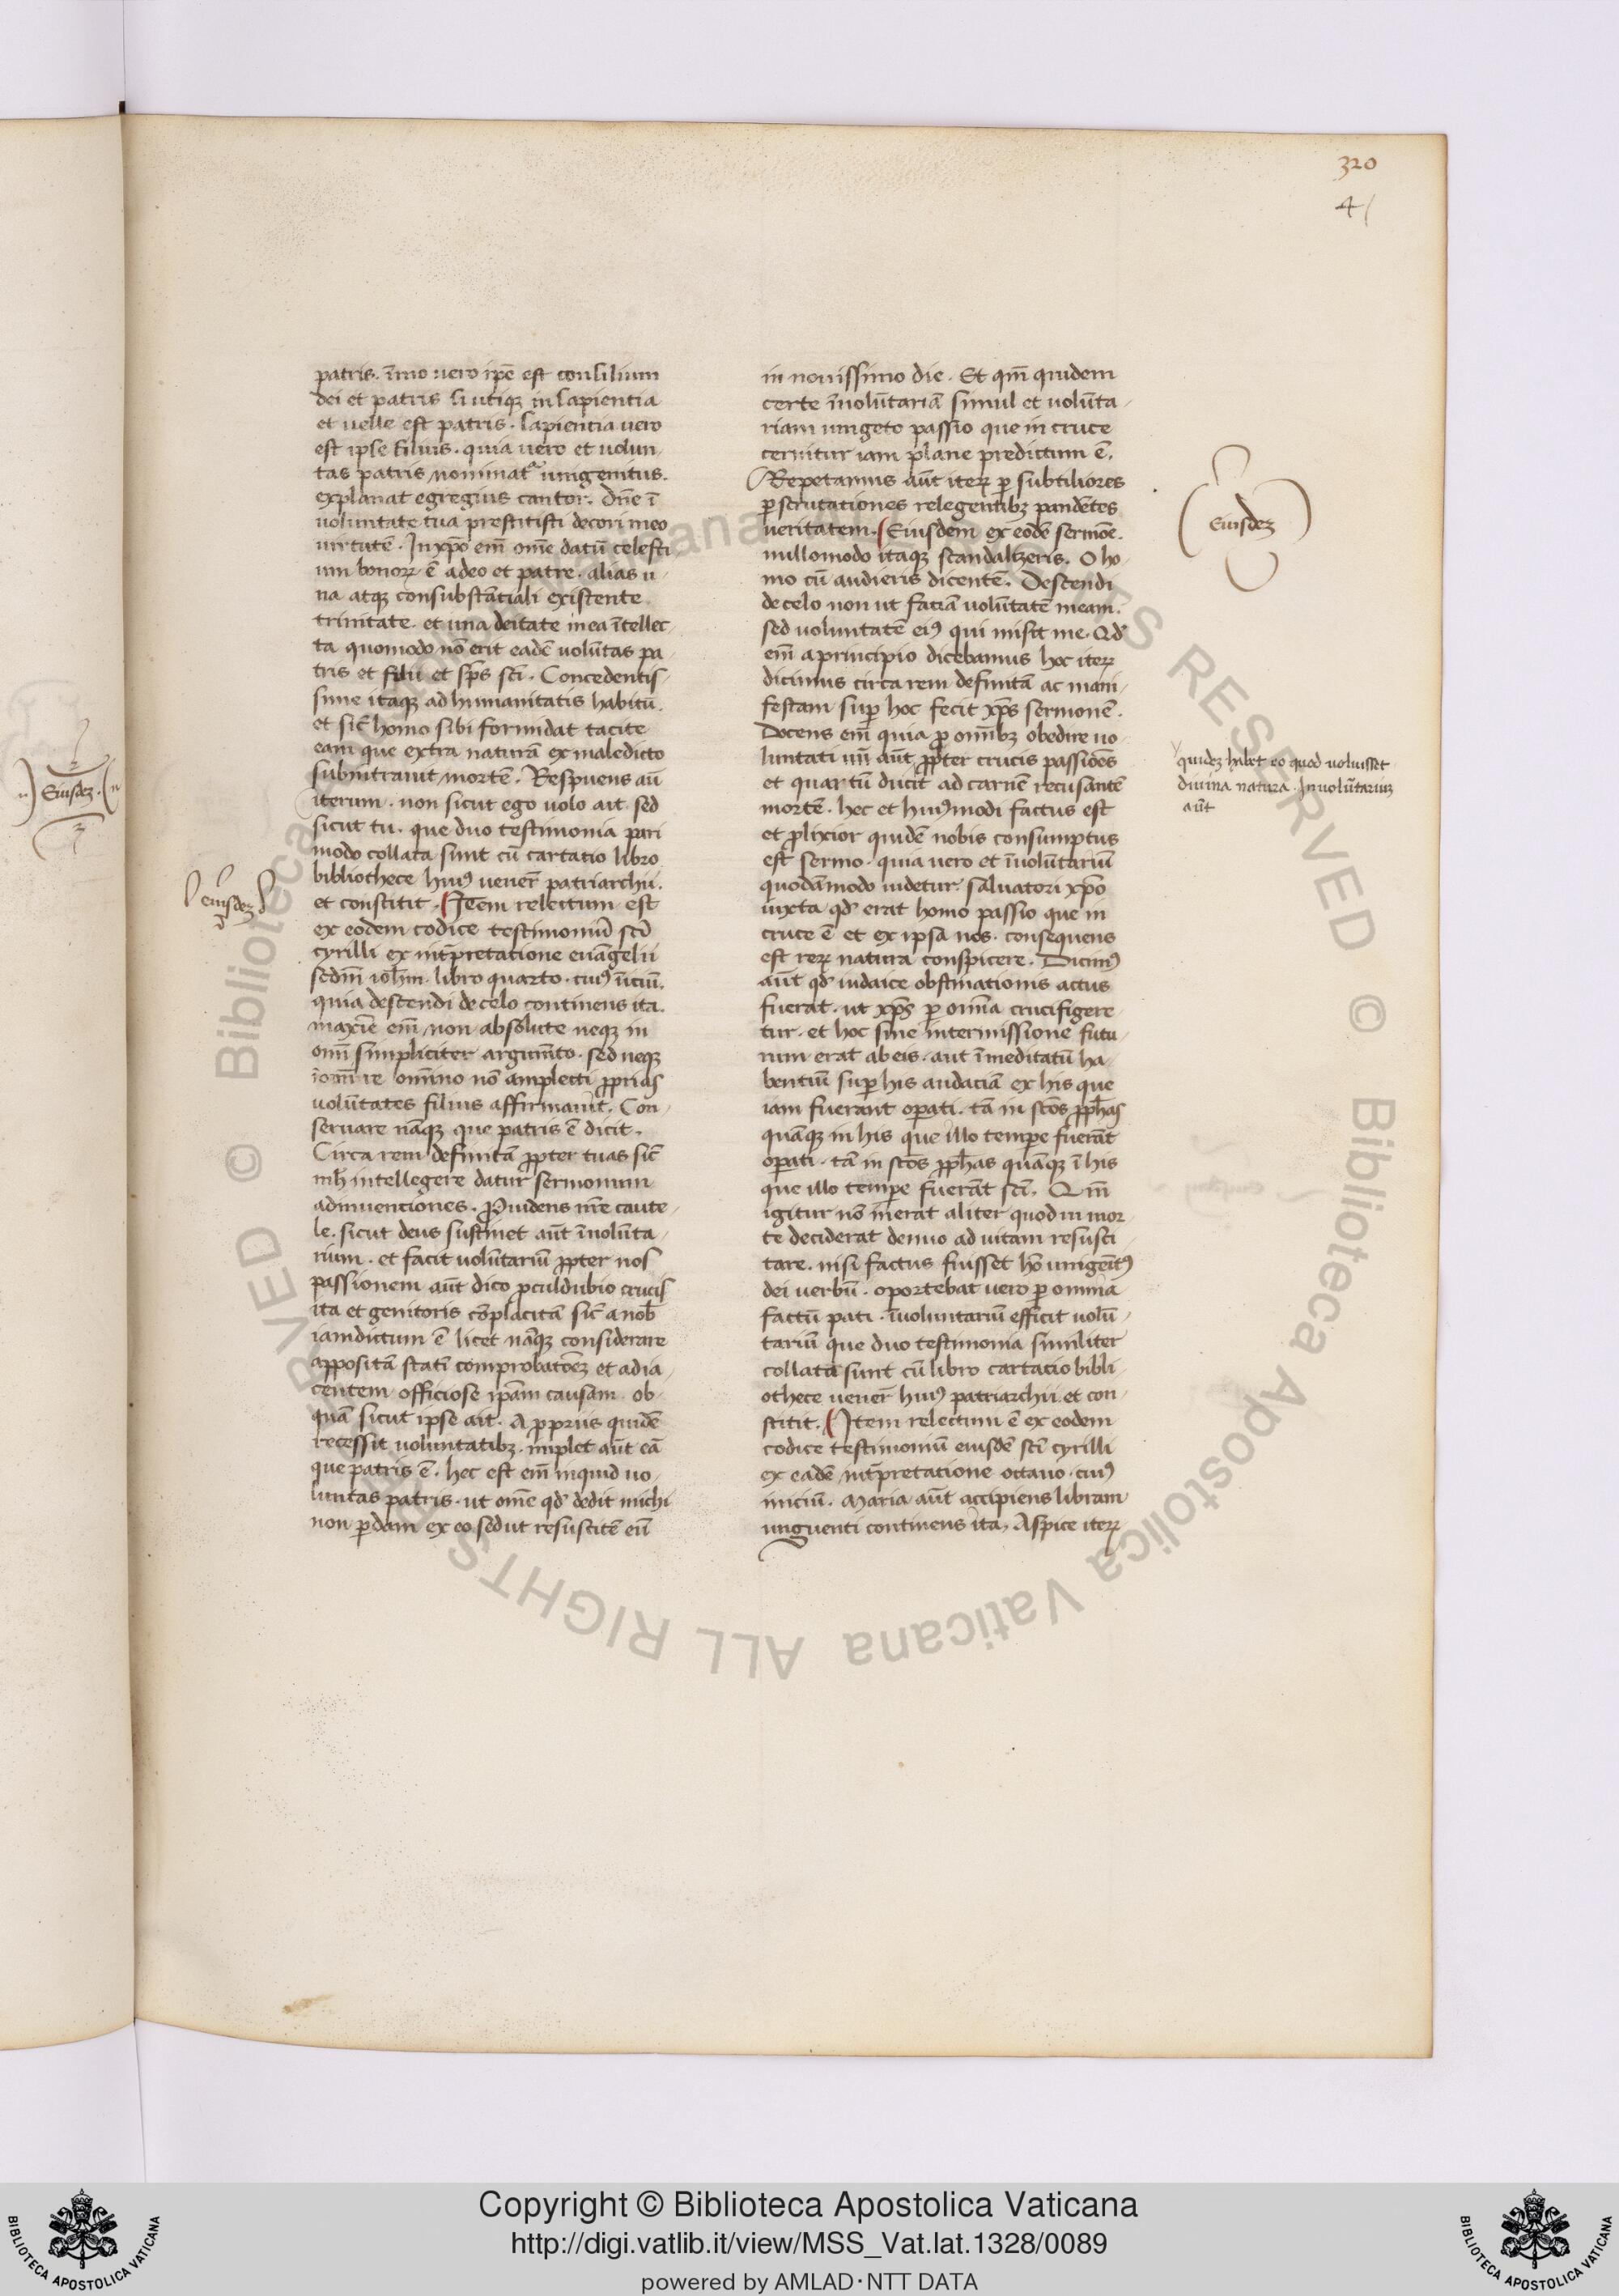 320
41
patris. īmo uero ip̄e est consilium
dei et patris si utiqꝫ in sapientia
et uelle est patris. sapientia uero
est ipse filius. quia uero et uolun-
tas patris nominat᷑ unigenitus.
explanat egregius cantor. dn̄e ī
uoluntate tua prestitisti decori meo
uirtutē. In xp̄o em̄ om̄e datū celesti
um bonoꝝ ē a deo et patre. alias u-
na atqꝫ consubstātiali existente
trinitate. et una deitate in ea ītellec-
ta quomodo nō erit eadē uolūtas pa-
tris et filii et sp̄s sc̄i. Concedentis-
sime itaqꝫ ad humanitatis habitū.
et sic̄ homo sibi formidat tacite
eam que extra naturā ex maledicto
subintrauit mortē. Respuens aū
iterum. non sicut ego uolo ait. sed
sicut tu. que duo testimonia pari
modo collata sunt cū cartatio libro
bibliothece huiꝰ uener̄ patriarchii.
et constitit. Item relectum est
ex eodem codice testimoniū sc̄i
cyrilli ex int̄pretatione euāgelii
sedm̄ ioh̄m. libro quarto. cuiꝰ īiciū.
quia descendi de celo continens ita.
maxīe em̄ non absolute neqꝫ in
om̄i simpliciter argum̄to. sed neqꝫ
omīno nō amplecti ꝓprias
uolūtates filius affirmauit. Con-
seruare nāqꝫ que patris ē dicit.
Circa rem definitā ꝓpter tuas sic̄
mh̄ intellegere datur sermonum
adinuentiones. Prouidens nr̄e caute-
le. sicut deus sustinet aūt īuolūta-
rium. et facit uolūtariū ꝓpter nos
passionem aūt dico ꝓculdubio crucis
ita et genitoris cōplacitā sic̄ a nob̄
iamdictum ē licet nāqꝫ considerare
appositā statī comprobatōeꝫ et adia-
centem officiose ip̄am causam. ob-
quā sicut ipse ait. A propriis quidē
recessit uoluntatibꝫ. implet aūt eā
que patris ē. hec est em̄ inquid uo-
luntas patris. ut om̄e qd̄ dedit michi
non ꝑdam ex eo sed ut resuscitē eū
in nouissimo die. Et qm̄ quidem
certe īuolūtariā simul et uolūta-
riam unigeto passio que in cruce
cernitur iam plane predictum ē.
Repetamus aūt iteꝝ ꝑ subtiliores
ꝑscrutationes relegentibꝫ pandētes
ueritatem. Eiusdem ex eodē sermōe.
nullomodo itaqꝫ scandalizeris. O ho-
mo cū audieris dicentē. Descendi
de celo non ut faciā uolūtatē meam.
sed uoluntatē eiꝰ qui misit me. Qd̄
em̄ a principio dicebamus hoc iteꝝ
dicimus circa rem definitā ac mani-
festam suꝑ hoc fecit xp̄s sermonē.
Docens em̄ quia ꝓ omībꝫ obedire uo-
luntati uū aūt ꝓpter crucis passiōes
et quartū ducit ad carnē recusantē
mortē. hec et huiꝰmodi factus est
et ꝓlixior quidē nobis consumptus
est sermo. quia uero et īuolūtariū
quodāmodo uidetur saluatori xp̄o
iuxta qd̄ erat homo passio que in
cruce ē et ex ipsa nos. consequens
est reꝝ natura conspicere. Dicimꝰ
aūt qd̄ iudaice obstinationis actus
fuerat. ut xp̄s ꝑ om̄ia crucifigere-
tur. et hoc sine intermissione futu-
rum erat ab eis. aut īmeditatū ha-
bentiū suꝑ his audaciā ex his que
iam fuerant oꝑati. tā in sc̄os ꝓph̄as
quāqꝫ in his que illo tempe fuerāt
oꝑati. tā in sc̄os ꝓph̄as quāqꝫ ī his
que illo tempe fuerāt sc̄i. Qm̄
igitur nō inerat aliter quod in mor
te deciderat denuo ad uitam resusci-
tare. nisi factus fuisset hō unigēitꝰ
dei uerbū. oportebat uero ꝑ omnia
factū pati. īuoluntariū efficit uolū-
tariū que duo testimonia similiter
collata sunt cū libro cartacio bibli-
othece uener̄ huiꝰ patriarchii et con-
stitit. Item relectum ē ex eodem
codice testimoniū eiusdē sc̄i cyrilli
ex eadē int̄pretatione octauo. cuiꝰ
iniciū. Maria aūt accipiens libram
unguenti continens ita. Aspice iteꝝ
Eiusdeꝫ
eiusdeꝫ
Eiusdeꝫ
quideꝫ habet eo quod uoluisset
diuina natura. Inuolūtariuꝫ
aūt
Copyright © Biblioteca Apostolica Vaticana
http://digi.vatlib.it/view/MSS_Vat.lat.1328/0089
powered by AMLAD · NTT DATA
BIBLIOTECA APOSTOLICA VATICANA
BIBLIOTECA APOSTOLICA VATICANA
© Biblioteca Apostolica Vaticana ALL RIGHTS RESERVED